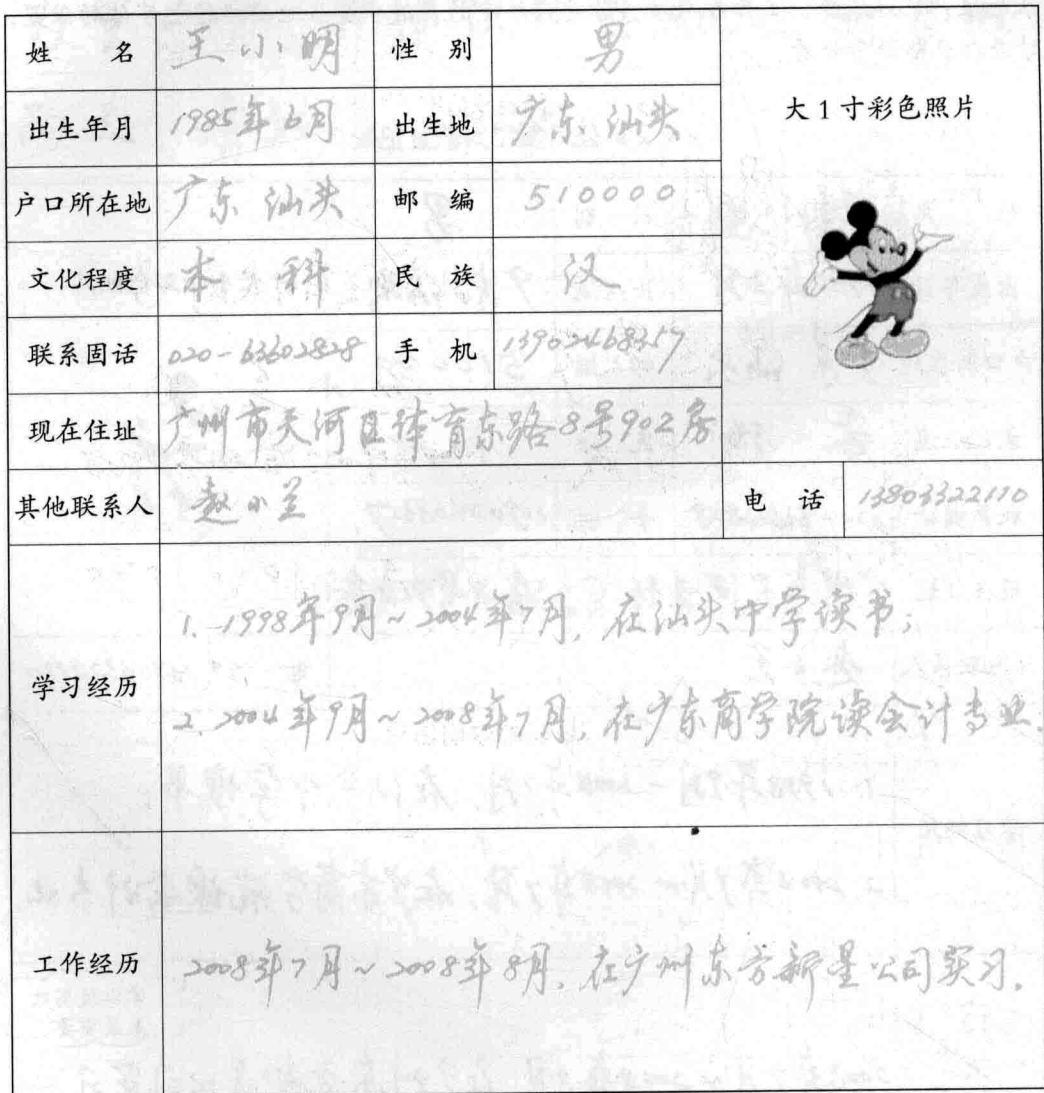 姓 名 王小明 性 别 男
大1寸彩色照片
出生年月 1985年6月 出生地 广东 汕头
户口所在地 广东 汕头 邮 编 510000
文化程度 本 科 民 族 汉
联系固话 020-63602828 手 机 13902468357
现在住址 广州市天河区体育东路8号902房
其他联系人 赵小兰 电 话 13803322110
学习经历
1. 1998年9月~2004年7月, 在汕头中学读书;
2. 2004年9月~2008年7月, 在广东商学院读会计专业.
工作经历 2008年7月~2008年8月, 在广州东方新星公司实习.